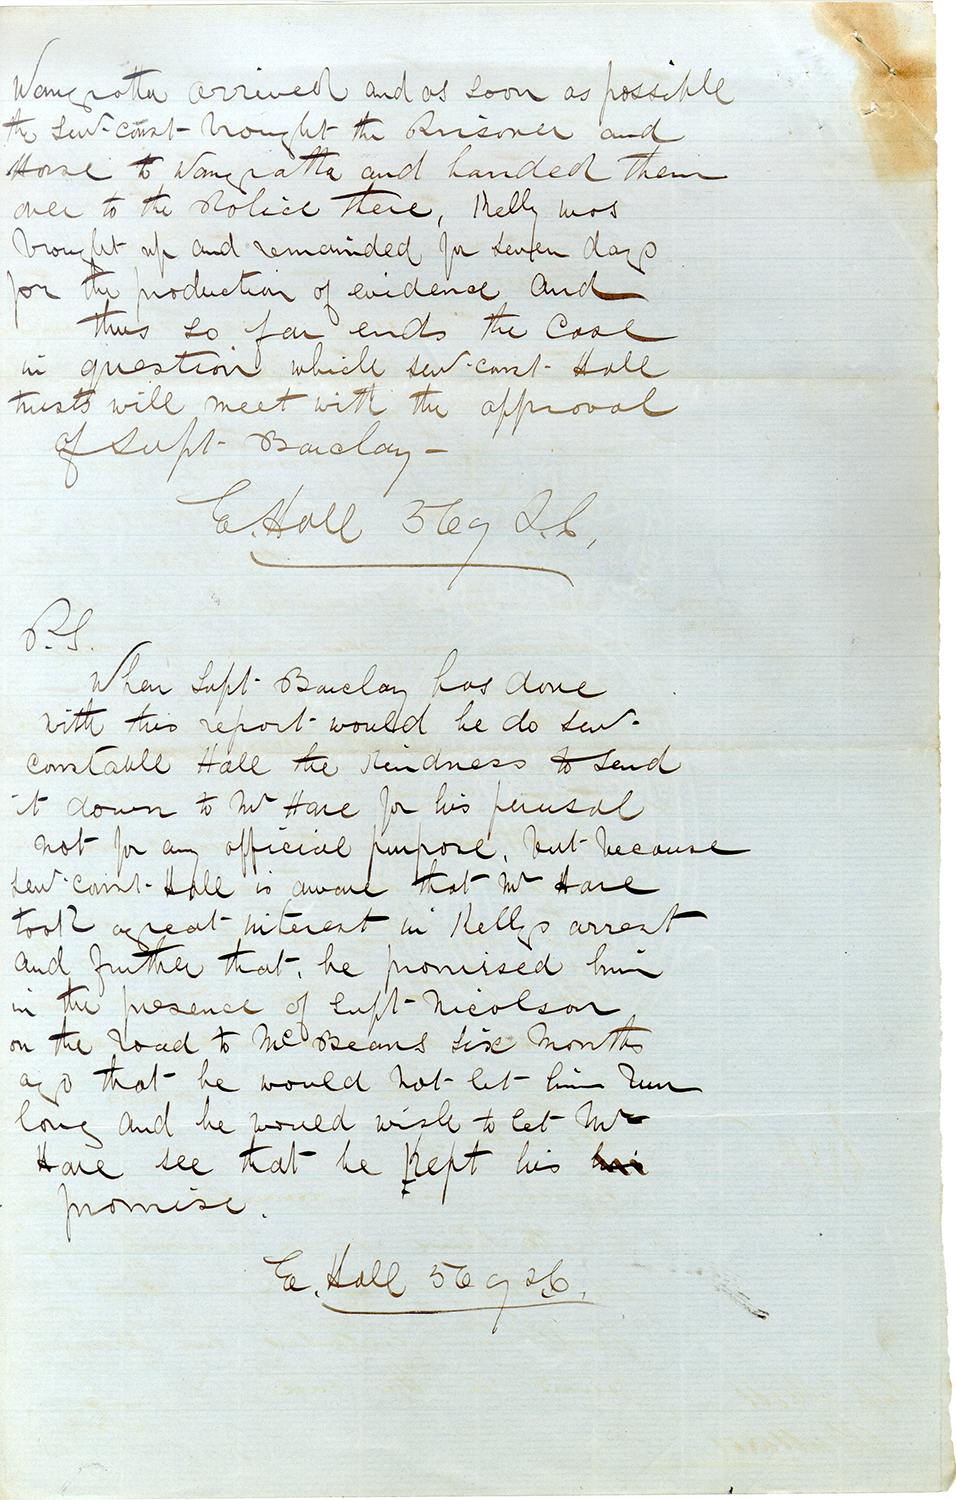 Wangratta arrived and as soon as possible
the Senr-const- brought the Prisoner and
Horse to Wangratta and handed them
over to the Police there, Kelly was
brought up and remainded for seven days
for the production of evidence and
thus so far ends the case
in question which Senr-const- Hall
trusts will meet with the approval
of Supt- Barclay -
E. Hall 569 S.C,
P.S.
When Supt- Barclay has done
with this report would he do Senr-
constable Hall the kindness to send
it down to Mr Hare for his perusal
not for any official purpose, but because
Senr-const- Hall is aware that Mr Hare
took a great interest in Kellys arrest
and further that, he promised him
in the presence of Supt- Nicolson
on the road to McBeans six months
ago that he would not let him run
long and he would wish to let Mr
Hare see that he kept his
promise.
E. Hall 569 S.C,